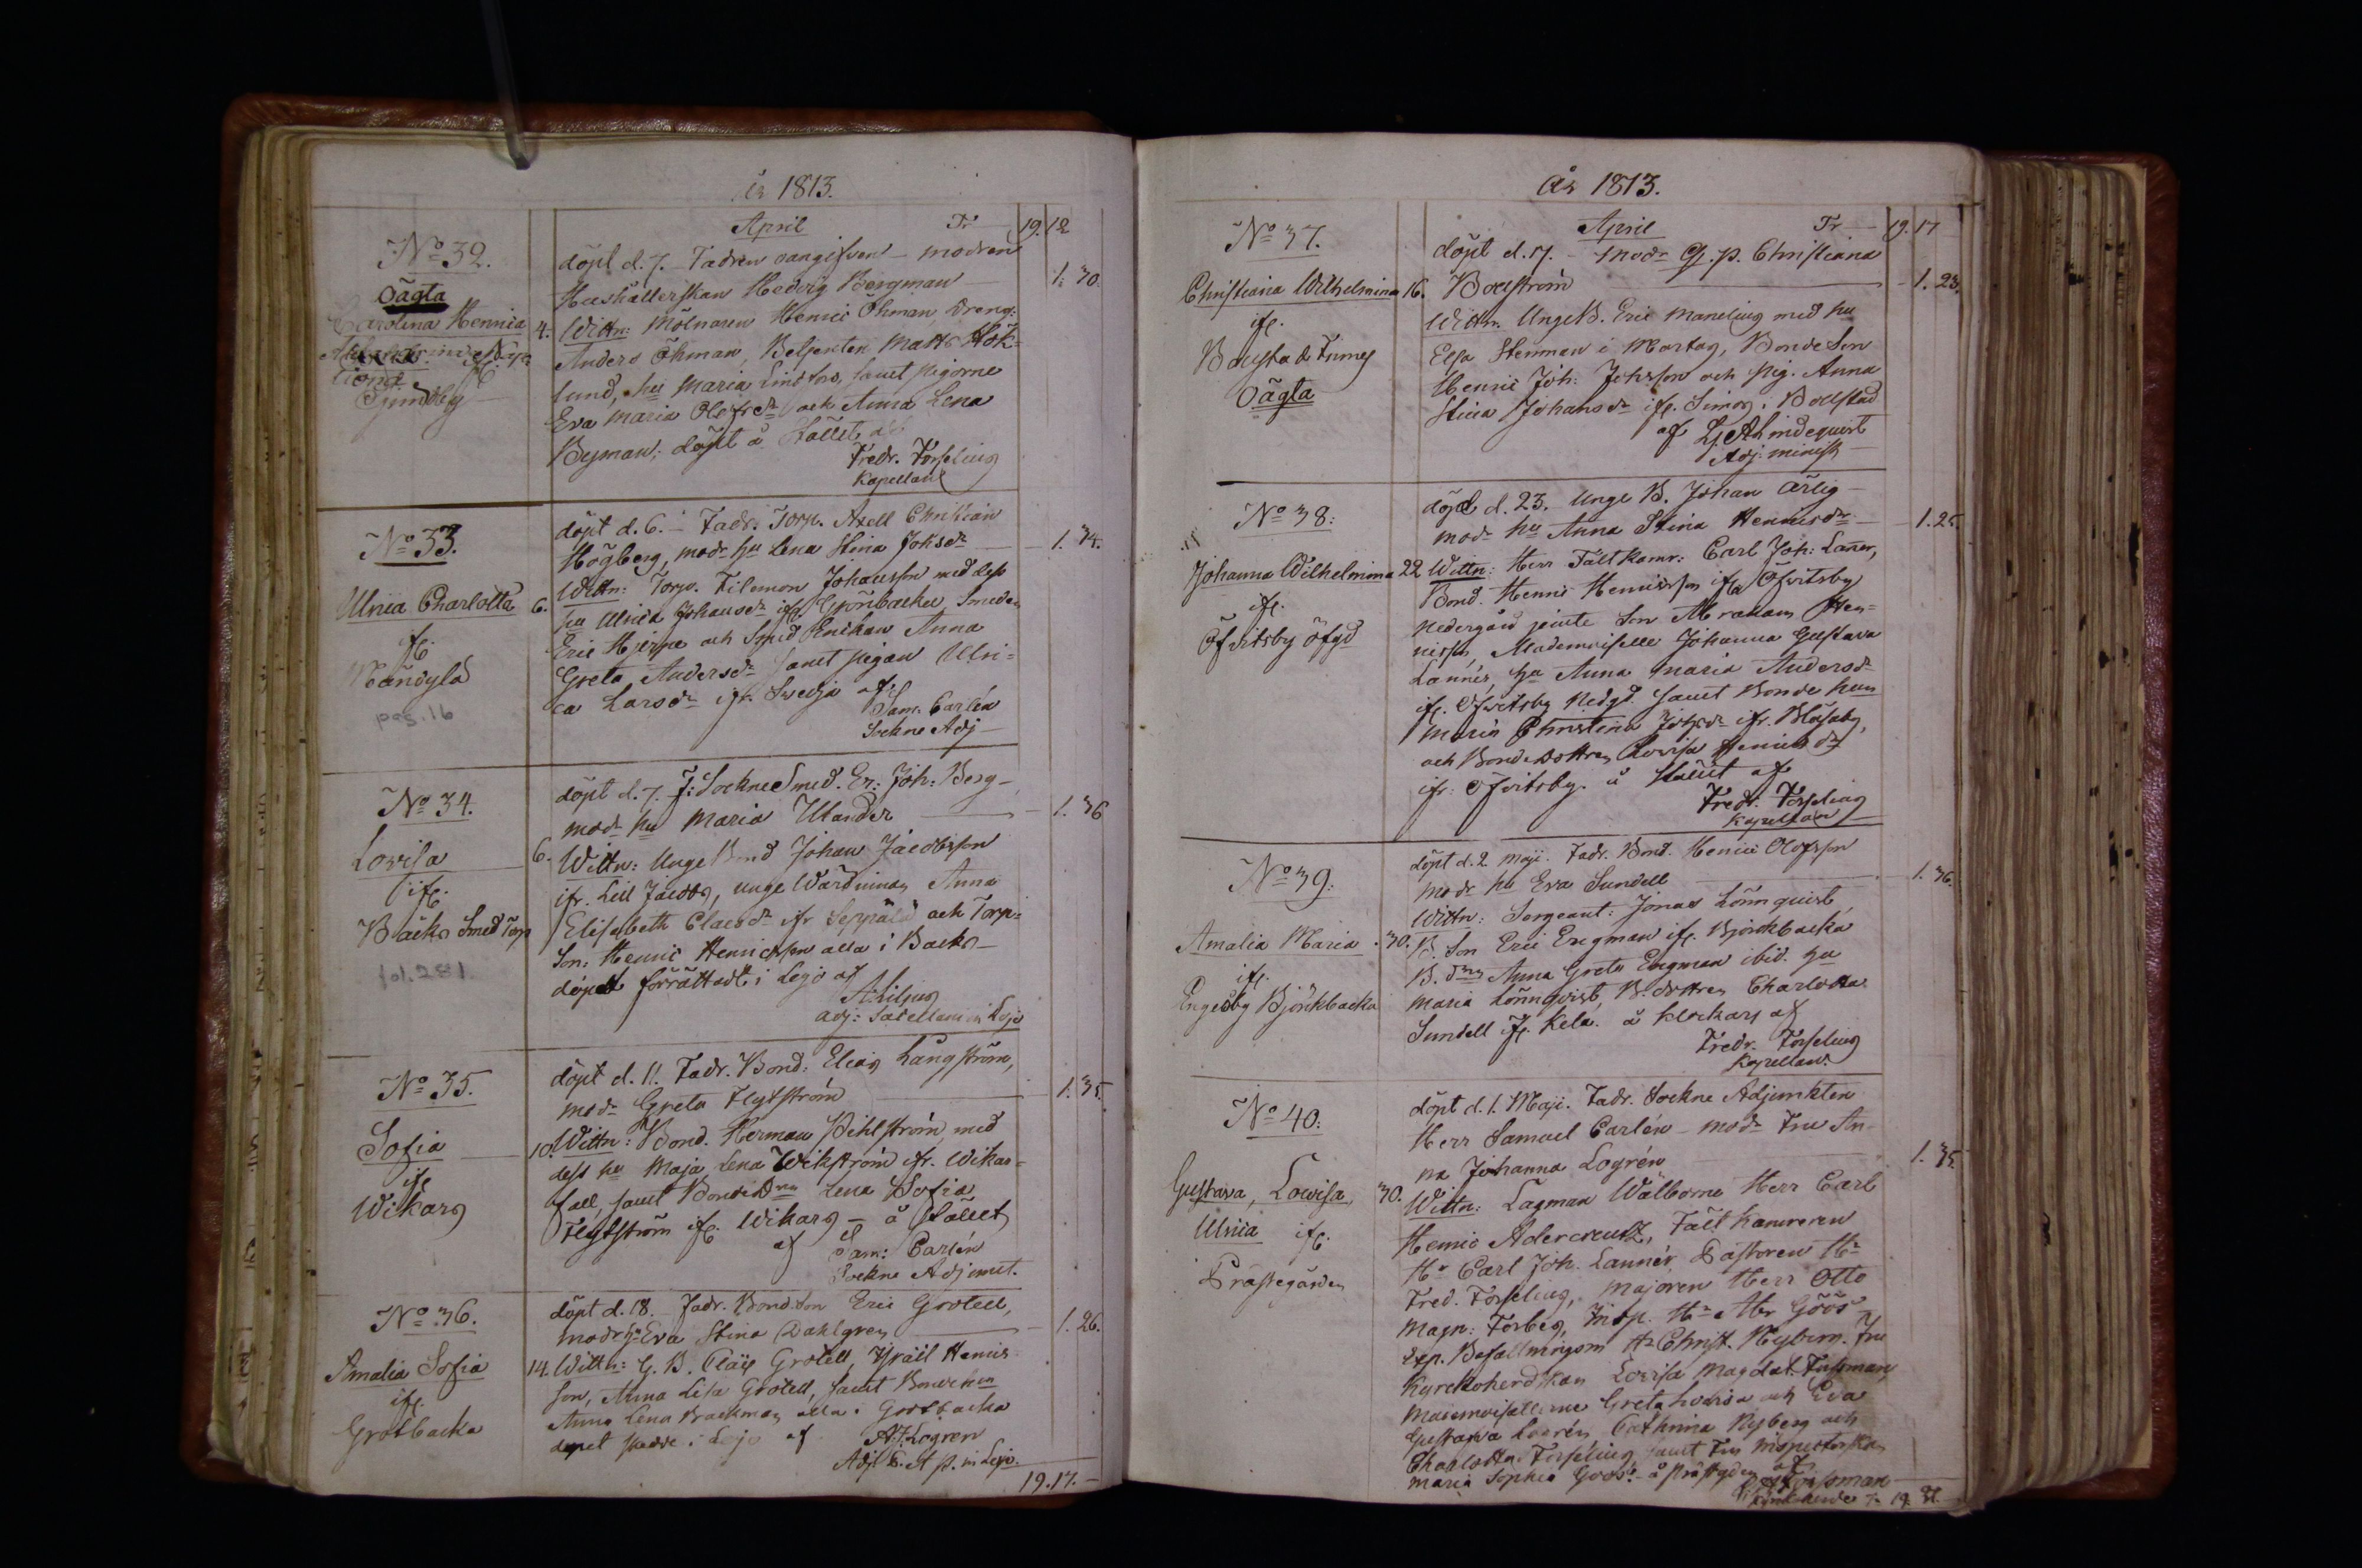 År 1813.
April Tr 19. 12
No 32.
Oägta
Carolina Hennica 4.
ifr.
döpt d. 7. Fadren oangifven – modren
Hushållerskan Hedvig Bergman 1. 30.
Wittn: Mölnaren Henric Öhman, dreng:
Anders Öhman, Betjenten Matts Hök-
lund, hu Maria Lindfors, samt pigorne
Eva Maria Olofsdr och Anna Lena
Byman; döpt å Stället af
Fredr. Forselius
Kapellan
No 33.
Ulrica Charlotta 6.
ifr.
pag. 16
döpt d. 6. – Fadr. Torp. Axell Christian
Högberg, modr hu Lena Stina Johsdr 1. 34.
Wittn: Torp. Filemon Johansson med dess
hu Ulrica Johansdr ifr Grönbacka Smeden
Eric Hjerpe och Smed Enckan Anna
Greta Andersdr samt pigan Ulri-
ca Larsdr ifr. Svedja af
Sam. Carlén
Sockne Adj
No 34.
Lovisa 6.
ifr.
Bäcks Smed Torp
fol. 281
döpt d. 7. F: Sockne Smed. Er: Joh: Berg –
modr hu Maria Ulander 1. 36
Wittn: Unge Bond Johan Jacobsson
ifr. Lill Jacobs, unge Wärdinnan Anna
Elisabeth Claesdr ifr Seppälä och Torp-
Son: Henric Henricsson alla i Backs –
döpet förrättadt i Lojo af
A. Lilius
adj: Sacellani in Lojo
No 35.
Sofia 10.
ifr
Wikars
döpt d. 11. Fadr. Bond: Elias Långström,
modr Greta Flytström 1. 35.
Wittn: Bond. Herman Pihlström, med
dess hu Maja Lena Wikström ifr. Wikars-
fall, samt Bonde Drn Lena Sofia
Flytström ifr. Wikars – å Stället
af Sam: Carlén
Sockne Adjunct.
No 36.
Amalia Sofia 14.
ifr.
Grotbacka
döpt d. 18. Fadr. Bond Son Eric Grotell,
modr hu Eva Stina Dahlgren 1. 26.
Wittn: G. B. Claes Grotell, Israël Henrics-
son, Anna Lisa Grotell, samt Bonde hun
Anna Lena Backman alla i Grotbacka
döpet skedde i Lojo af A. J. Logren
Adj. in Lojo.
19. 17. –
År 1813.
April Tr 19. 17
No 37.
Christiana Wilhelmina 16.
ifr.
Oägta
döpt d. 17. – modr Christiana
Boström 1. 28.
Wittn. Unge B. Eric Manelius med hu
Elsa Stenman i Martas, Bonde Son
Henric Joh: Johsson och pig. Anna
Stina Johansdr ifr. Simos i Bollstad
af G. A. Lindequist
Adj. minist
No 38:
Johanna Wilhelmina 22
ifr.
Öfvitsby öfgd
döpt d. 23. Unge B. Johan Arlig
modr hu Anna Stina Henricsdr 1. 25.
Wittn: Herr Fält Kamr: Carl Joh: Laner,
Bond. Henric Henricsson ifr Öfvitsby
nedergård jemte Son Abraham Hen-
ricsson, Mademoiselle Johanna Gustava
Lannér, hu Anna Maria Andersdr
ifr. Öfvitsby Nedgd samt Bonde hun
Maria Christina Johsdr ifr. Blåsaby,
och Bonde Dottren Lovisa Henricsdr
ifr. Öfvitsby. å Stället af
Fredr. Forselius
Kapellan
No 39:
Amalia Maria 30.
ifr.
Engesby Björkbacka
döpt d. 2 Maji. Fadr. Bond. Henric Olofsson
modr hu Eva Sundell 1. 36.
Wittn: Sergeant: Jonas Lönnquist,
B. Son Eric Engman ifr. Björkbacka
B. drn Anna Greta Engman ibid. hu
Maria Lönnqvist, B. dottren Charlotta
Sundell ifr. Kela. å Klockars af
Fredr. Forselius
Kapellan
No 40:
Gustava, Lovisa, 30.
Ulrica ifr.
Prästegården
döpt d. 1. Maji. Fadr. Sockne Adjunkten
Herr Samuel Carlén – modr Fru An-
na Johanna Logrén 1. 35.
Wittn: Lagman Wälborne Herr Carl
Henric Adercreutz, Fält Kamreren
Hr Carl Joh. Lannér, Pastoren Hr
Fred. Forselius, Majoren Herr Otto
Magn: Insp. Hr Abr Göös
exp. Befallningsm Hr Christ. Nyberg. Fru
Kyrckoherdskan Lovisa Magdal. Forsman,
Mademoisellerne Greta Lovisa och Eva
Gustava Logrén, Cathrina Nyberg och
Charlotta Forselius, samt Fru Inspectorskan
Maria Sophia Göös – å Prästgården af
Forsman
Kyrckoherde 19.